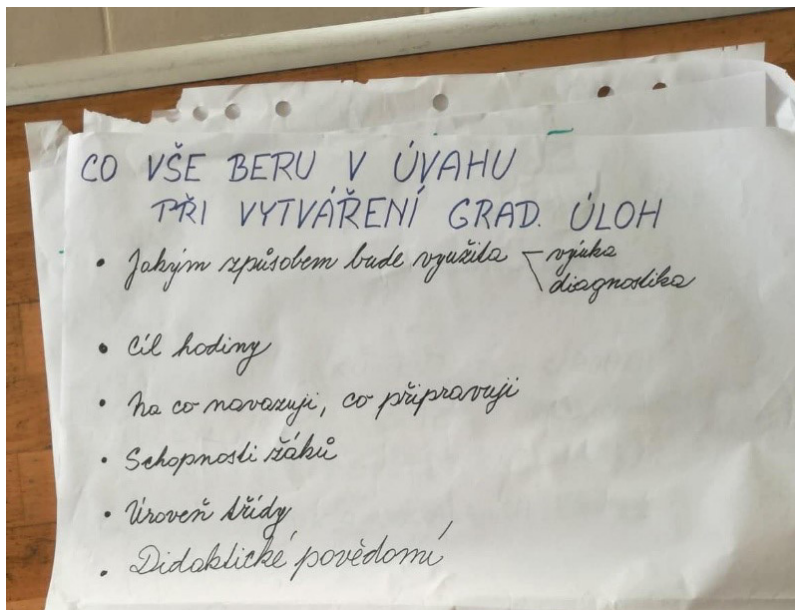 CO VŠE BERU V ÚVAHU
PŘI VYTVÁŘENÍ GRAD. ÚLOH
• Jakým způsobem bude využita – výuka
\ diagnostika
• Cíl hodiny
• Na co navazuji, co připravuji
• Schopnosti žáků
• Úroveň třídy
• Didaktické povědomí